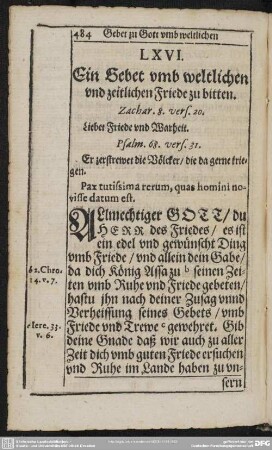 484 Gebet zu Gott vmb weltlichen
LXVI.
Ein Gebet vmb weltlichen
vnd zeitlichen Friede zu bitten.
Zachar. 8. vers. 20.
Liebet Friede vnd Warheit.
Psalm. 68. vers. 31.
Er zerstrewet die Völcker / die da gerne krie-
gen.
Pax tutissima rerum, quas homini no-
visse datum est.
ALlmechtiger GOTT / du
HERR des Friedes / es ist
ein edel vnd gewünscht Ding
vmb Friede / vnd allein dein Gabe /
b 2. Chro.
14. v. 7.
da dich König Assa zu b seinen Zei-
ten vmb Ruhe vnd Friede gebeten /
hastu jhn nach deiner Zusag vnnd
Verheissung seines Gebets / vmb
c Iere. 33.
v. 6.
Friede vnd Trewe c gewehret. Gib
deine Gnade daß wir auch zu aller
Zeit dich vmb guten Friede ersuchen
vnd Ruhe im Lande haben zu vn-
sern